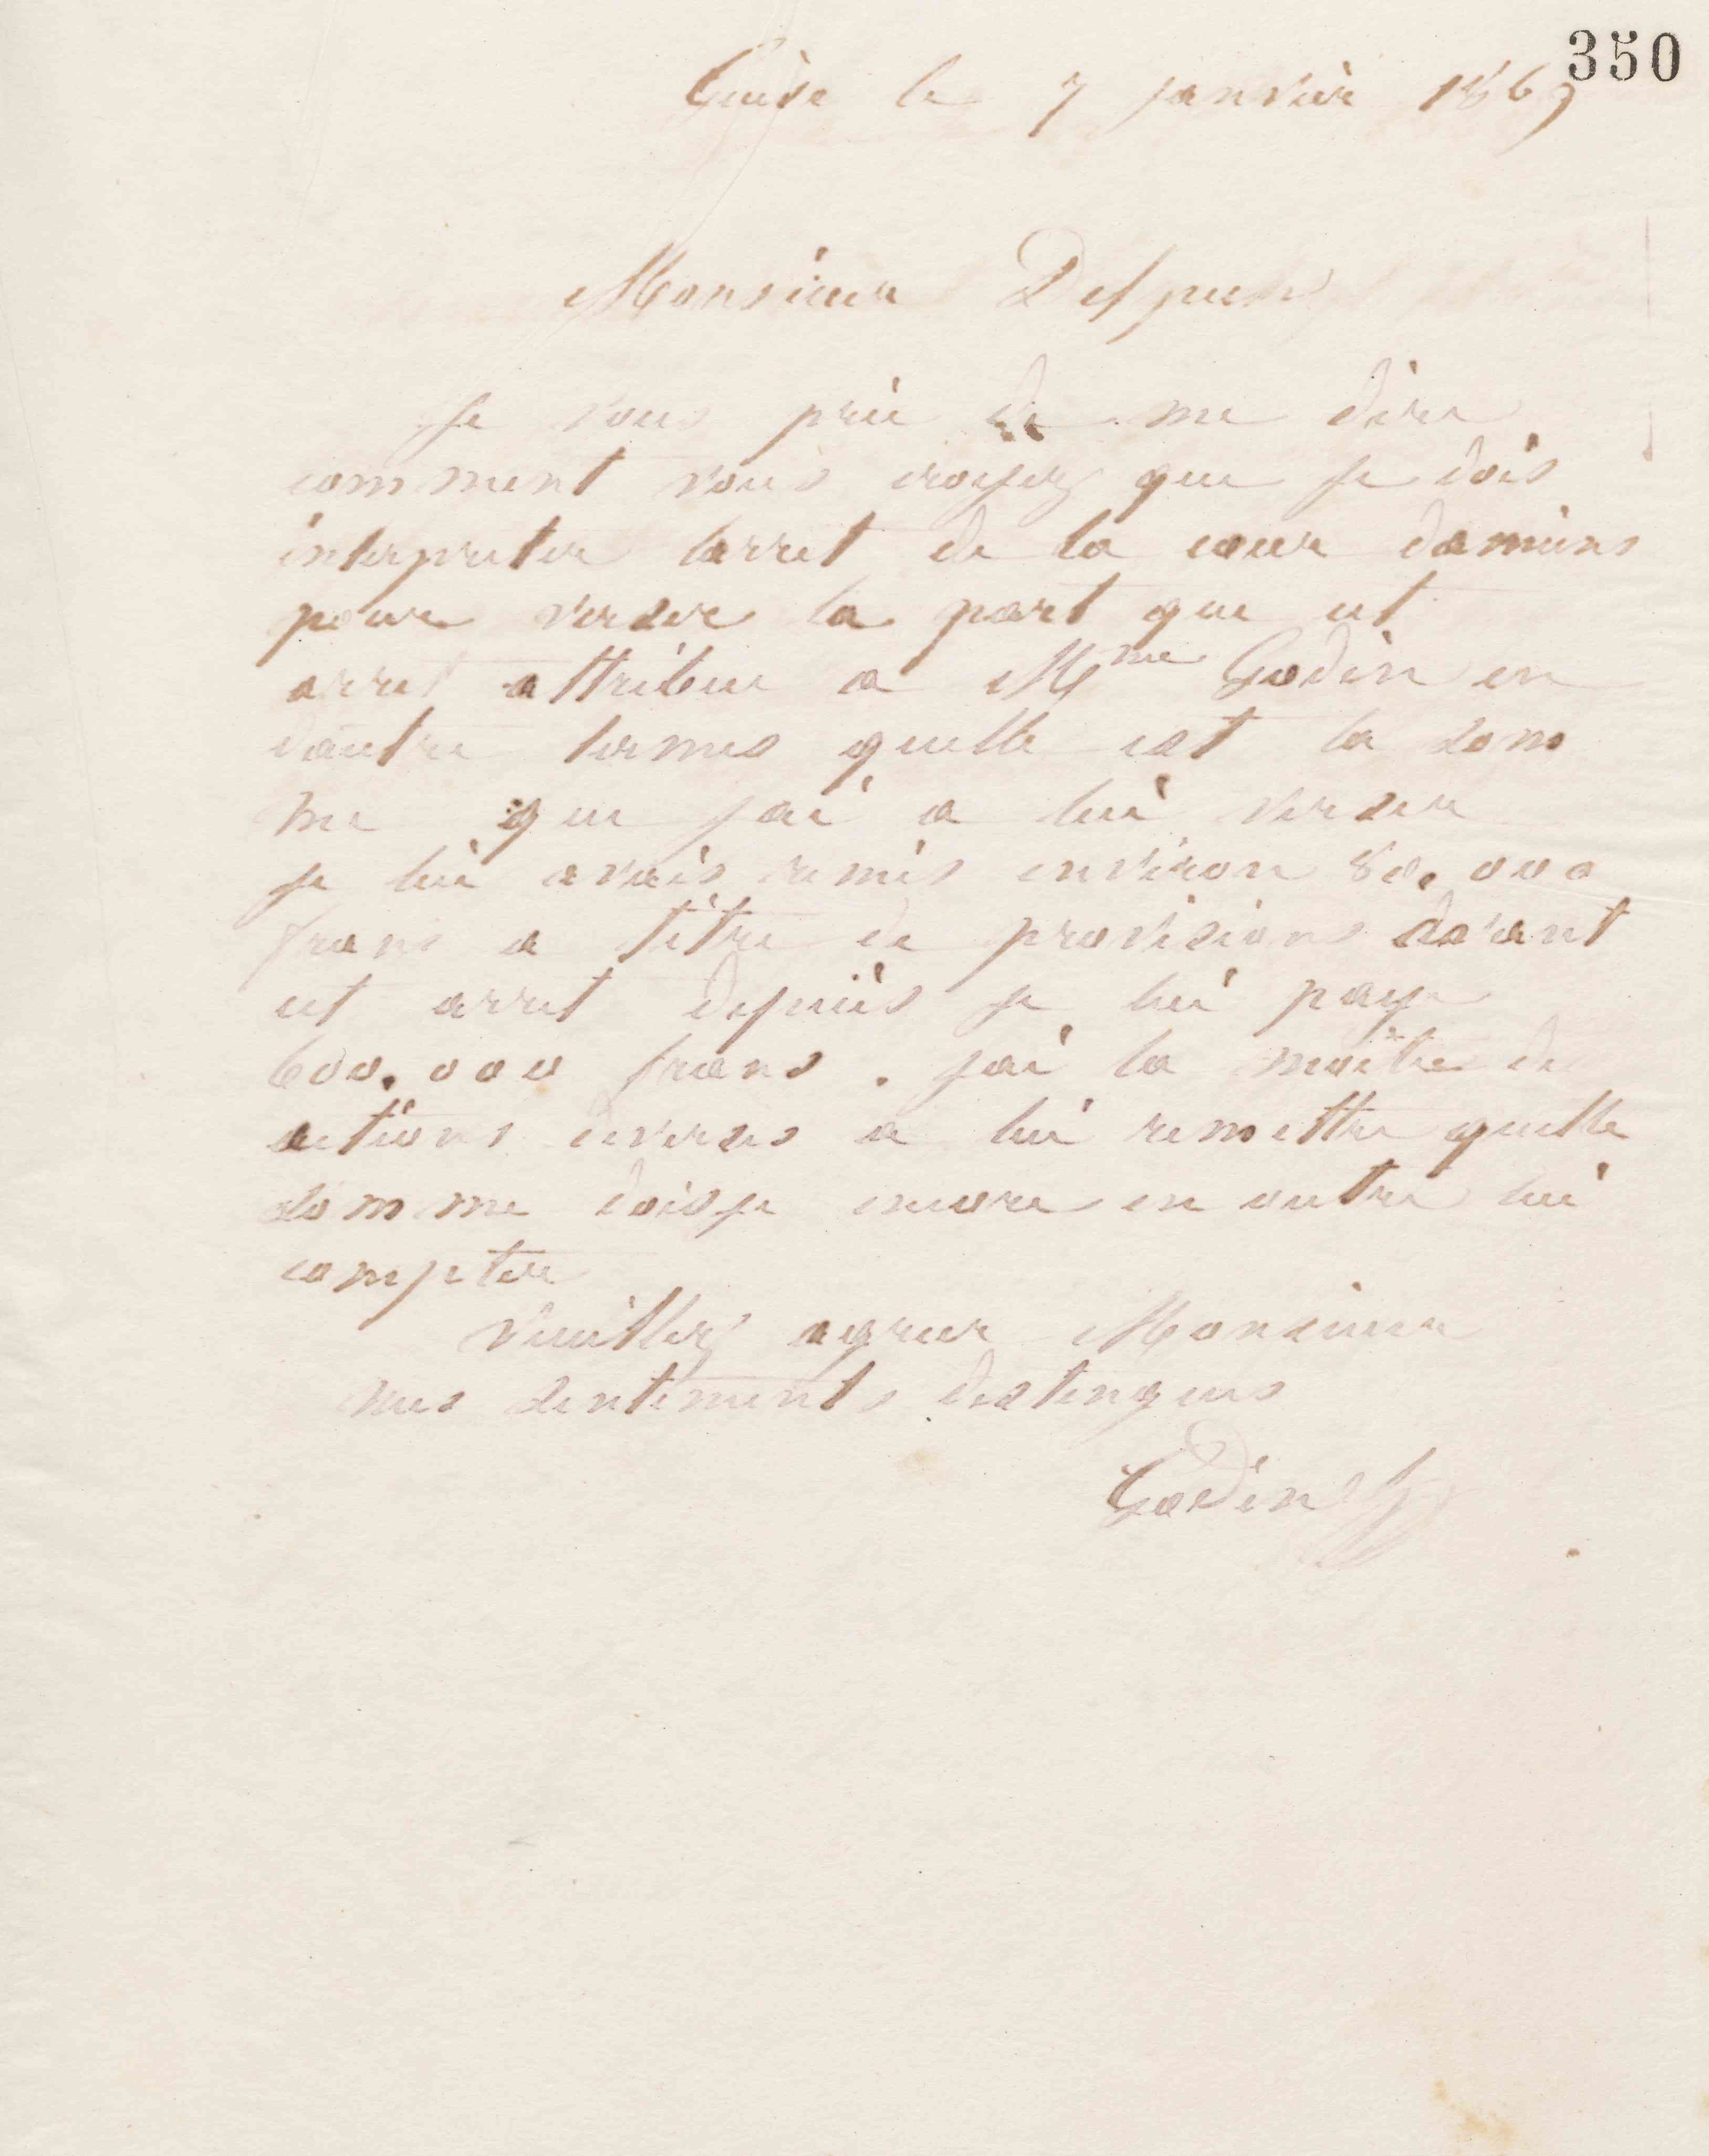 350
Guise le 7 janvier 1869
Monsieur
Je vous prie de me dire
comment vous croyez que je dois
interpreter larret de la cour damiens
pour verser la part que cet
arret attribue a Mme Godin en
dautre termes quelle est la som
me que jai a lui verser
je lui avais remis environ 80.000
frans a titre de provisions
cet arret depuis je lui paye
600.000 frans . jai la moitie de
actions diverses a lui remettre quelle
somme doisje encore en outre lui
compter
Veuillez agreer Monsieur
mes sentiments distengues
Godin